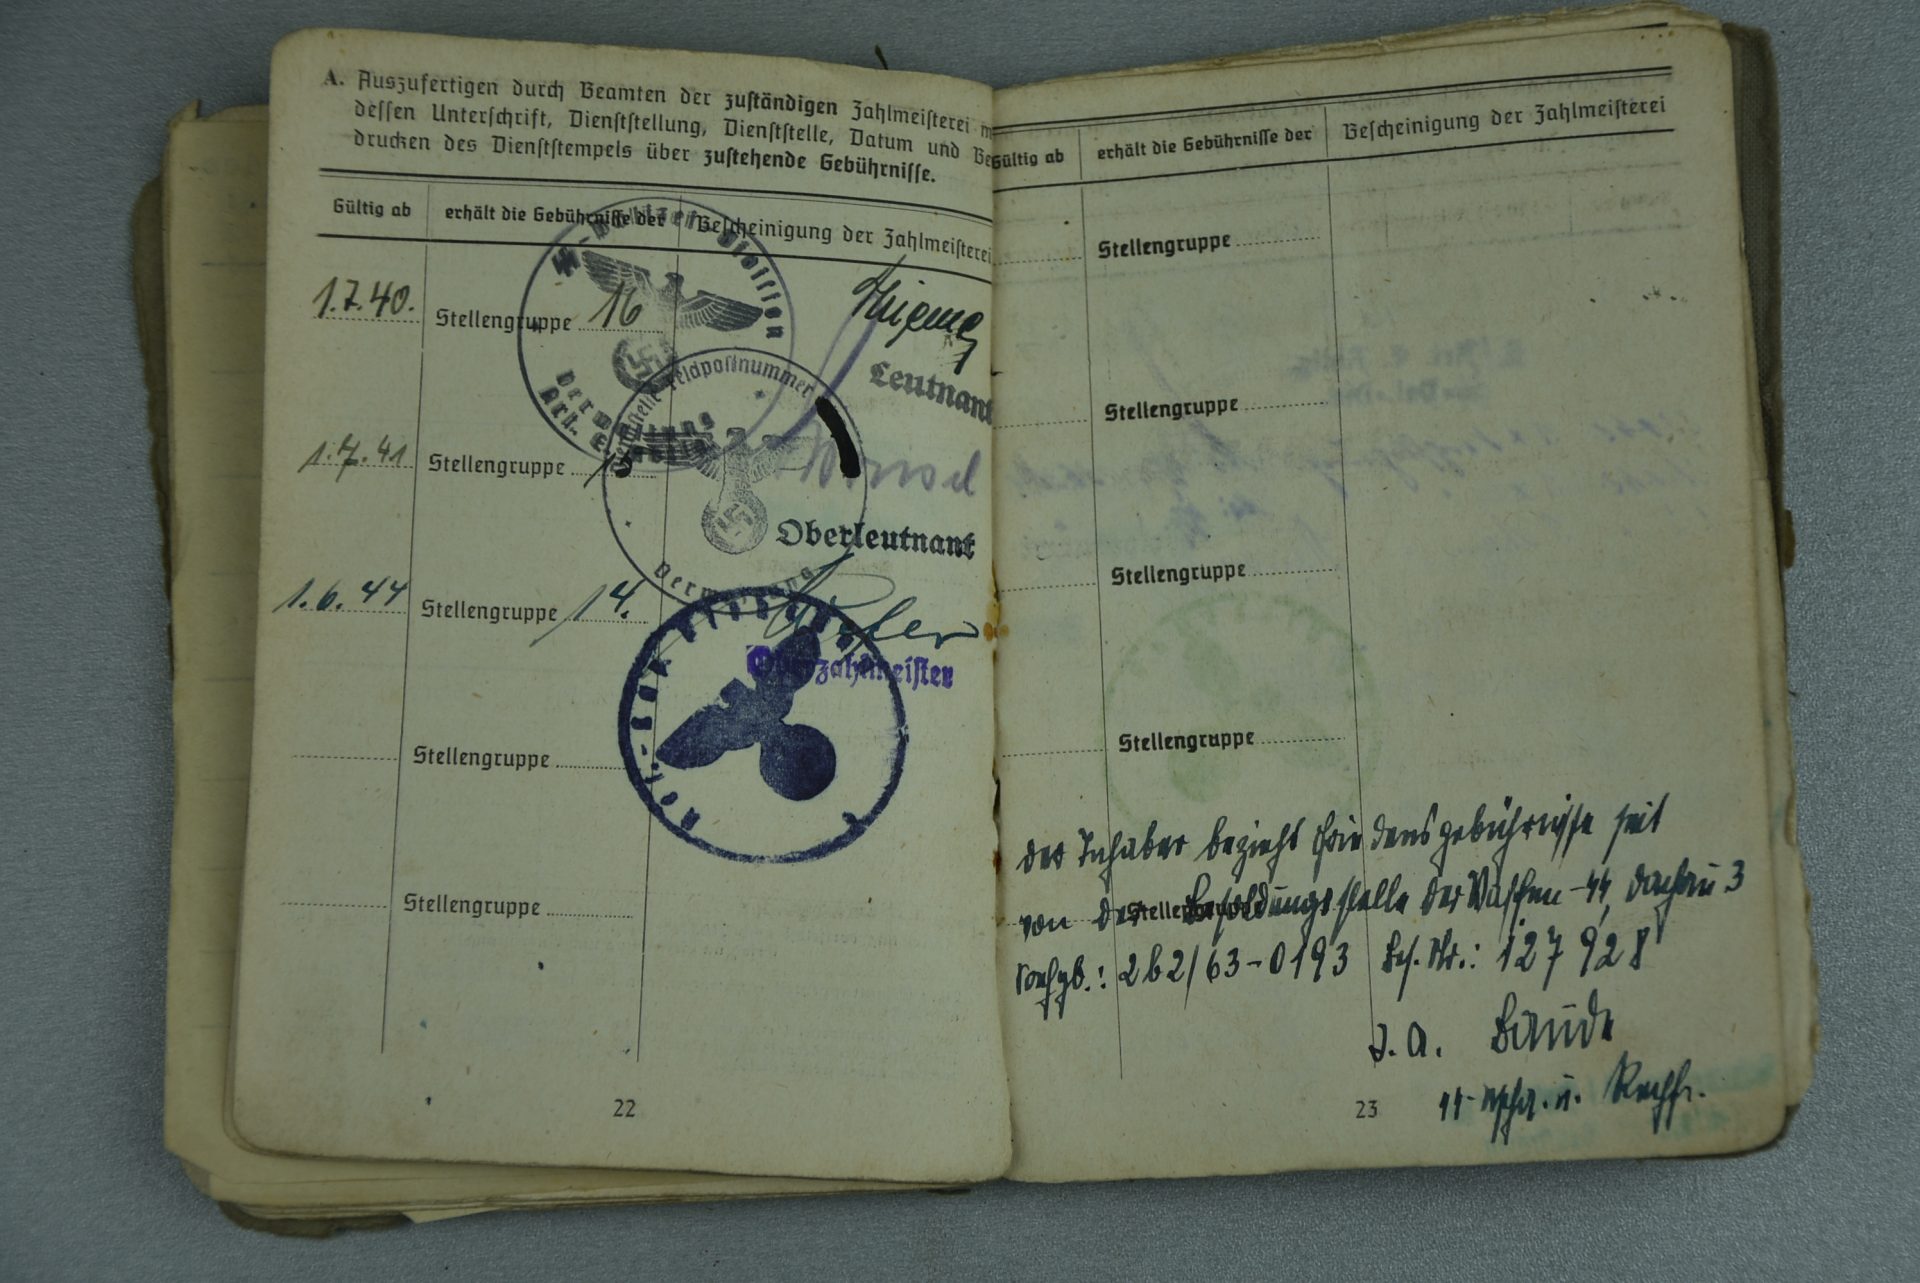 A. Auszufertigen durch Beamten der zuständigen Zahlmeisterei m
dessen Unterschrift, Dienststellung, Dienststelle, Datum und Be
drucken des Dienststempels über zustehende Gebührnisse.
Gültig ab erhält die Gebührnisse der Bescheinigung der Zahlmeisterei
1.7.40. Stellengruppe 16
Leutnant
1.7.41 Stellengruppe
Feldpostnummer
Oberleutnant
1.6.44 Stellengruppe 14.
Oberzahlmeister
Stellengruppe
Stellengruppe
22
Gültig ab erhält die Gebührnisse der Bescheinigung der Zahlmeisterei
Stellengruppe
Stellengruppe
Stellengruppe
Stellengruppe
der Inhaber bezieht Friedensgebührnisse seit
Stellengruppe
von der Besoldungsstelle der Waffen-SS, Dachau 3
2b2/63-0193 Bes. Nr.: 127 928
J.A. Baude
23